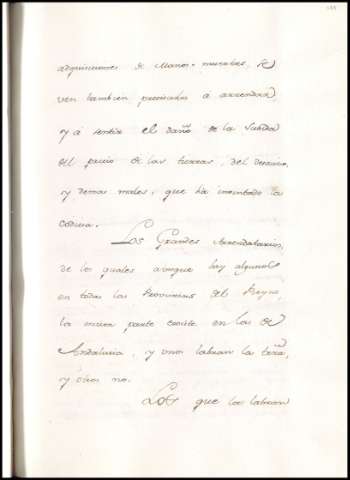 adquisiciones de Manos-muertas, se
ven tambien precisados á arrendar,
y á sentir el daño de la Subida
del precio de las tierras, del desaucio,
y demas males, que ha inventado la
codicia.
Los Grandes Arrendatarios,
de los quales aunque hay algunos
en todas las Provincias del Reyno,
la mayor parte existe en las de
Andalucia, y unos labran la tierra,
y otros no.
Los que las labran